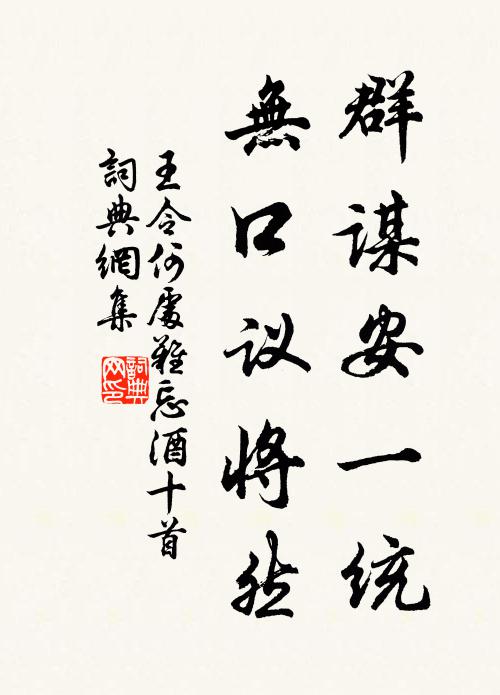 群谋安一统
無口议将然
王令何處難忘酒十首
詞典網集
詞典網印